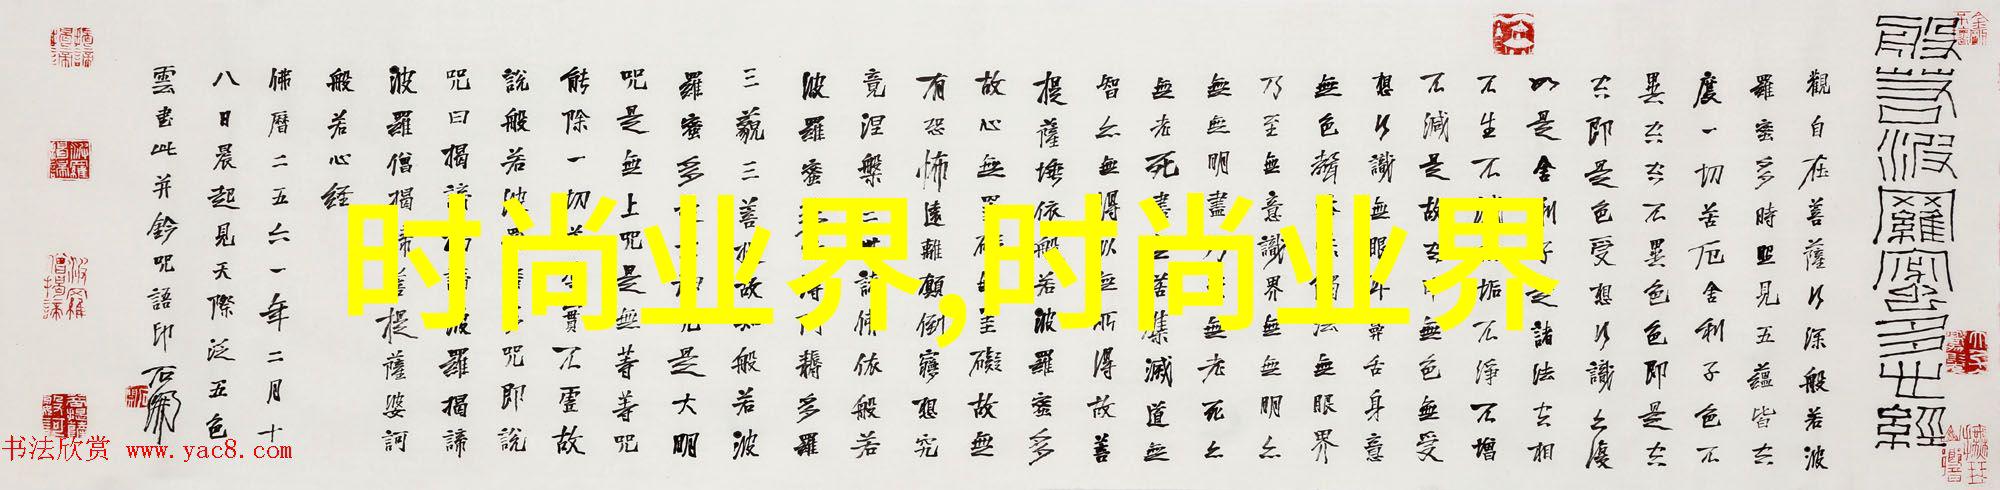 般若波羅蜜多心經
觀自在菩薩行深般若波
羅蜜多時照見五蘊皆空
度一切苦厄舍利子色不
異空空不異色色即是空
空即是色受想行識亦復
如是舍利子是諸法空相
不生不滅不垢不淨不增
不減是故空中無色無受
想行識無眼耳鼻舌身意
無色聲香味觸法無眼界
乃至無意識界無無明亦
無無明盡乃至無老死亦
無老死盡無苦集滅道無
智亦無得以無所得故菩
提薩埵依般若波羅蜜多
故心無罣礙故無
有恐怖遠離顛倒夢想究
竟涅槃三世諸佛依般若
波羅蜜多故得阿耨多羅
三藐三菩提故知般若波
羅蜜多是大明
咒是無上咒是無等等咒
能除一切苦真實不虛故
說般若波羅蜜多咒即說
咒曰揭諦揭諦波羅揭諦
波羅僧揭諦菩提薩婆訶
般若心經
佛曆二五六一年二月十
八日晨起見天際泛五色
雲書此并鈐咒語印
时尚业界,时尚业界
书法欣赏 www.yac8.com